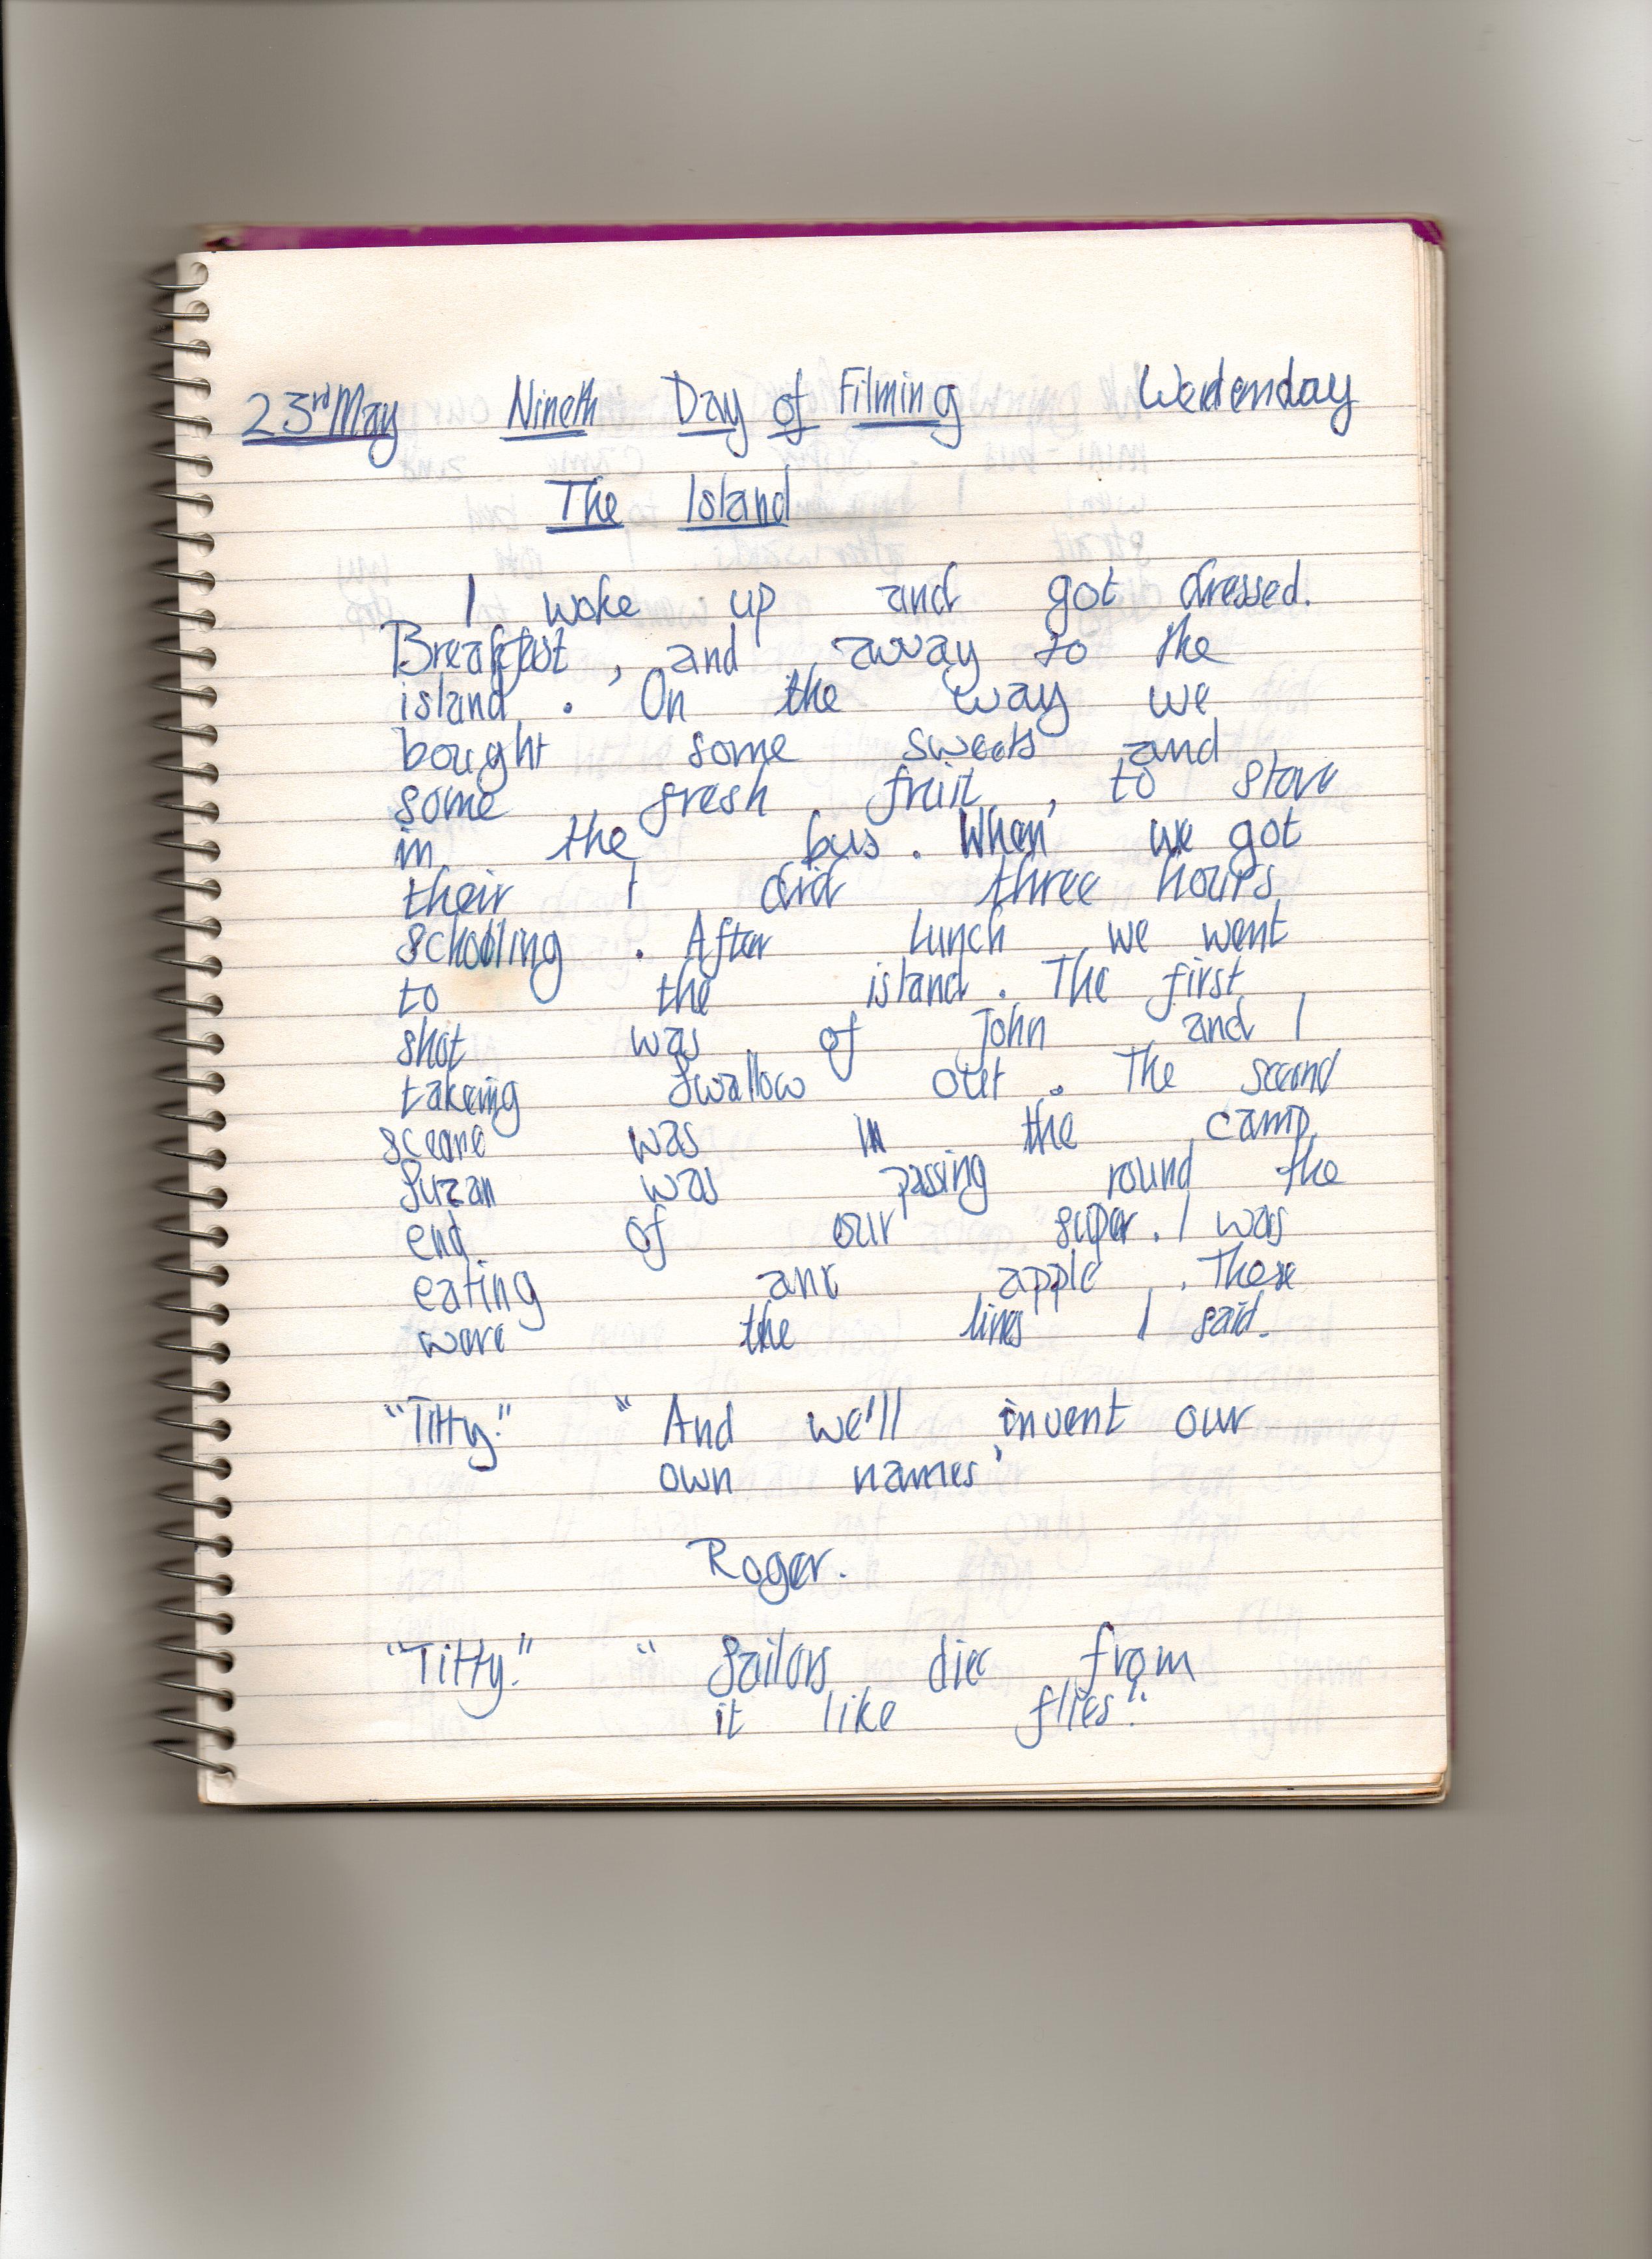 23rd May Nineth Day of Filming Wedenday
The Island
I woke up and got dressed.
Breakfast, and away to the
island. On the way we
bought some sweets and
some fresh fruit, to stove
in the bus. When we got
their I did three hours
schooling. After lunch we went
to the island. The first
shot was of John and I
takeing Swallow out. The second
sceane was in the camp
Suzan was passing round the
end of our super. I was
eating an apple. These
were the lines I said.
"Titty." "And we'll invent our
own names'
Roger.
"Titty." "Sailors die from
it like flies".